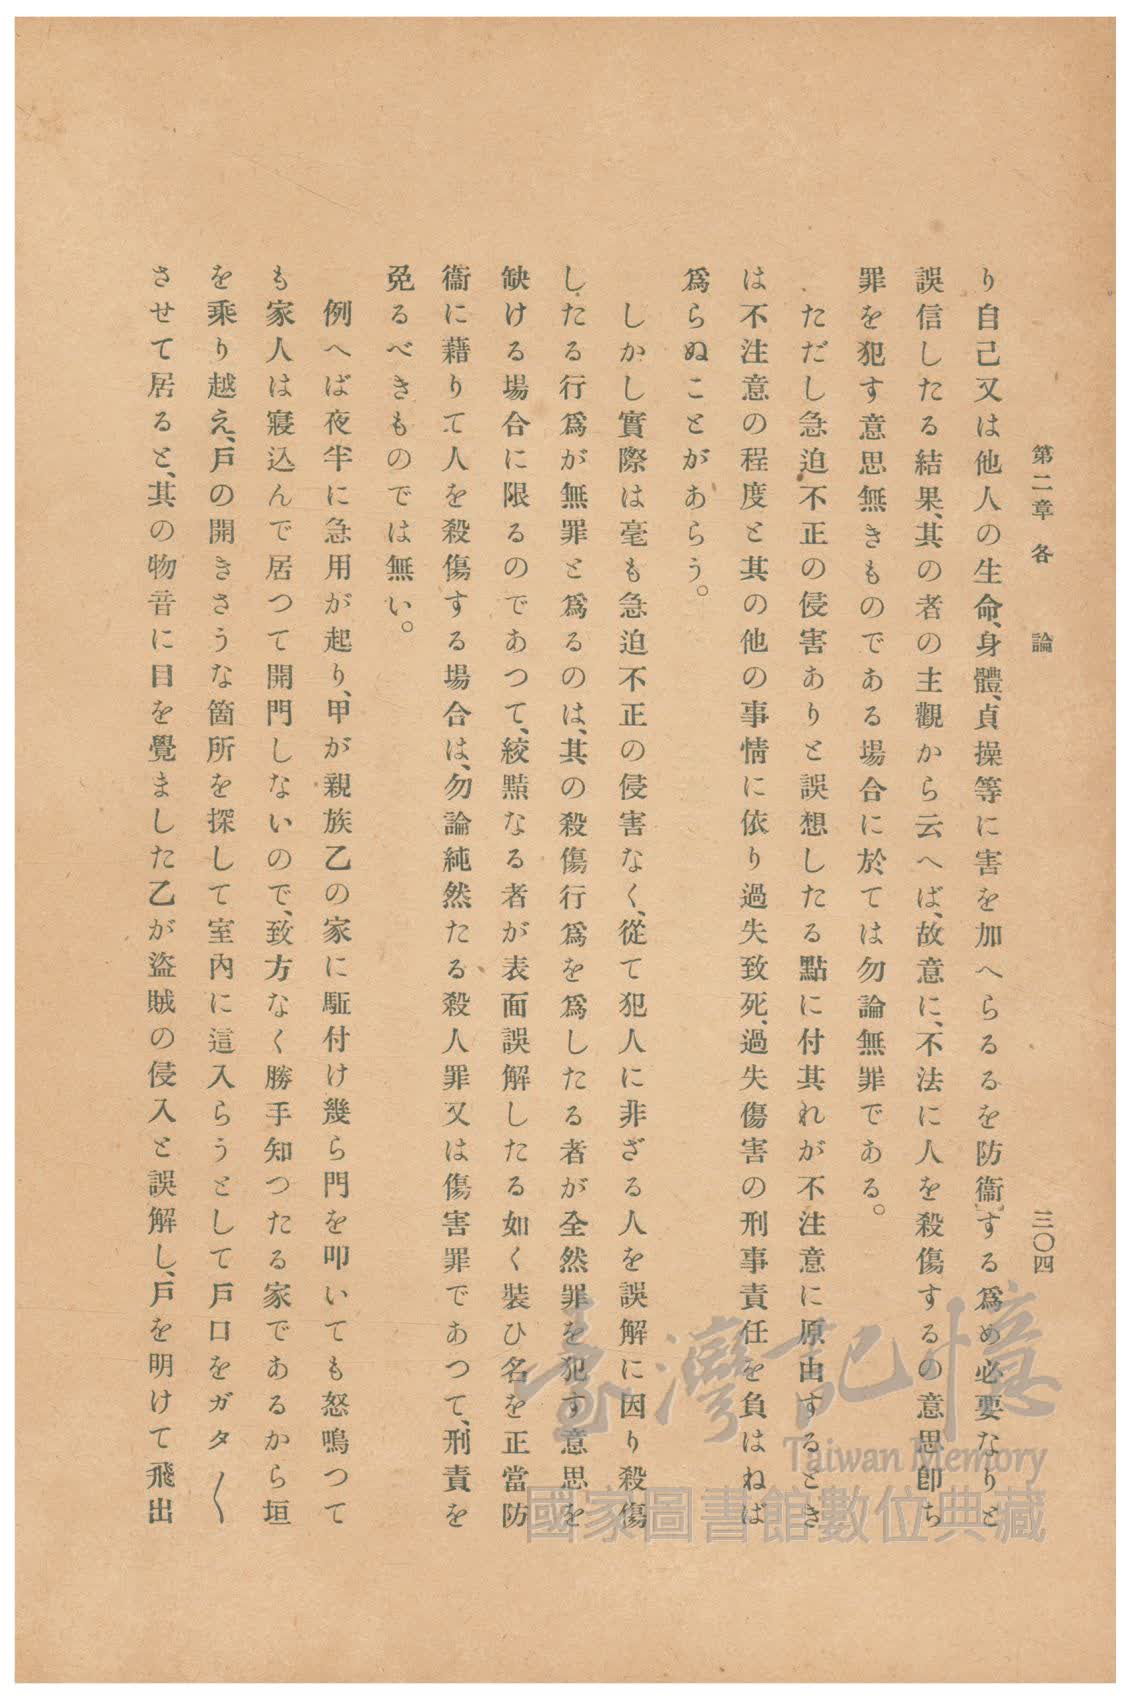 第二章 各論 三〇四
り自己又は他人の生命、身體、貞操等に害を加へらるるを防衞する爲め必要なりと
誤信したる結果、其の者の主觀から云へば、故意に、不法に人を殺傷するの意思卽ち
罪を犯す意思無きものである場合に於ては勿論無罪である。
ただし急迫不正の侵害ありと誤想したる點に付其れが不注意に原由するとき
は不注意の程度と其の他の事情に依り過失致死、過失傷害の刑事責任を負はねば
爲らぬことがあらう。
しかし實際は毫も急迫不正の侵害なく、從て犯人に非ざる人を誤解に因り殺傷
したる行爲が無罪と爲るのは、其の殺傷行爲を爲したる者が全然罪を犯す意思を
缺ける場合に限るのであつて、絞黠なる者が表面誤解したる如く裝ひ名を正當防
衞に藉りて人を殺傷する場合は、勿論純然たる殺人罪又は傷害罪であつて、刑責を
免るべきものでは無い。
例へば夜半に急用が起り、甲が親族乙の家に駈付け幾ら門を叩いても怒鳴つて
も家人は寢込んで居つて開門しないので、致方なく勝手知つたる家であるから垣
を乘り越え、戶の開きさうな箇所を探して室內に這入らうとして戶口をガタ〱
させて居ると、其の物音に目を覺ました乙が盜賊の侵入と誤解し、戶を明けて飛出
臺灣記憶
Taiwan Memory
國家圖書館數位典藏